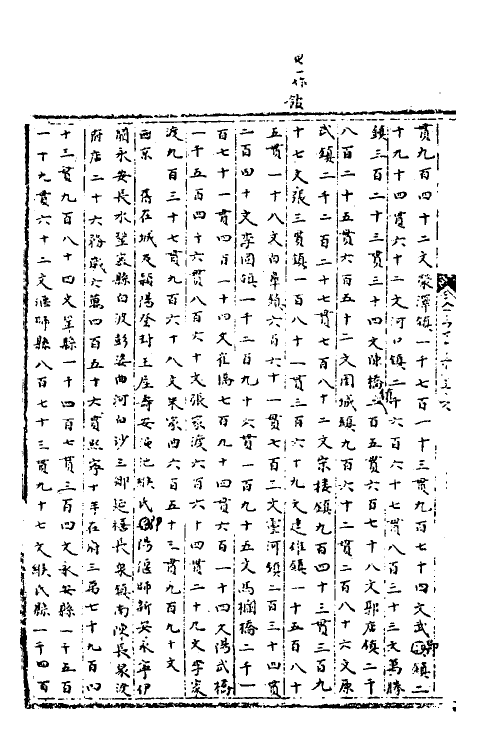 貫九百四十二文滎澤鎮一千七百一十三貫九百七十四文武鎮二
十九十四貫六十二文河口鎮二千六百六十七貫八百三十三文萬勝
鎮三百二十三貫三十四文陳橋鎮二百五貫六百七十八文郭店鎮二千
八百二十五貫六百五十一文圃城鎮九百六十二貫二百八十六文原
武鎮二千二百二十七貫七百八十二文宗樓鎮九百四十三貫三百九
十七文張三貫鎮一百八十一貫三百六十九文建雄鎮一千五百八十
五貫一十八文白皋鎮六百六十一貫七百二文靈河鎮二百三十四貫
二百四十文李固鎮一千二百九十六貫一百九十五文馬欄橋二千一
百七十一貫四百一十四文崔橋七百九十四貫六百一十四文陽武橋
一千五百四十六貫八百六十文張家渡六百六十四貫二十九文李家
渡九百三十七貫九百六十八文朱家曲六百五十三貫九百九十文
西京 舊在城及潁陽登封王屋壽安澠池緱氏陽偃師新安永寧伊
闕永安長水鞏密縣白波彭婆曲河白沙三鄉延禧長泉鎮南陝長泉汶
府店二十六務歲六萬四百五十六貫熙寧十年在府三萬七千九百四
十三貫九百八十四文鞏縣一千四百七貫三百四文永安縣一千五百
一十九貫六十二文偃師縣八百七十三貫九十七文緱氏縣一千四百